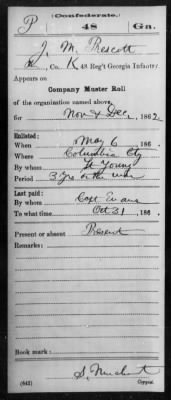 (Confederate.)
P 48 Ga.
J. M. Prescott
Co. K 48 Reg't Georgia Infantry.
Appears on
Company Muster Roll
of the organization named above,
for Nov & Dec, 1862
Enlisted:
When May 6, 186 .
Where Columbia Cty
By whom Lt Young
Period 3 yrs or the war
Last paid:
By whom Capt Evans
To what time Oct 31, 186 .
Present or absent Present
Remarks:
Book mark:
(642) Copyist.